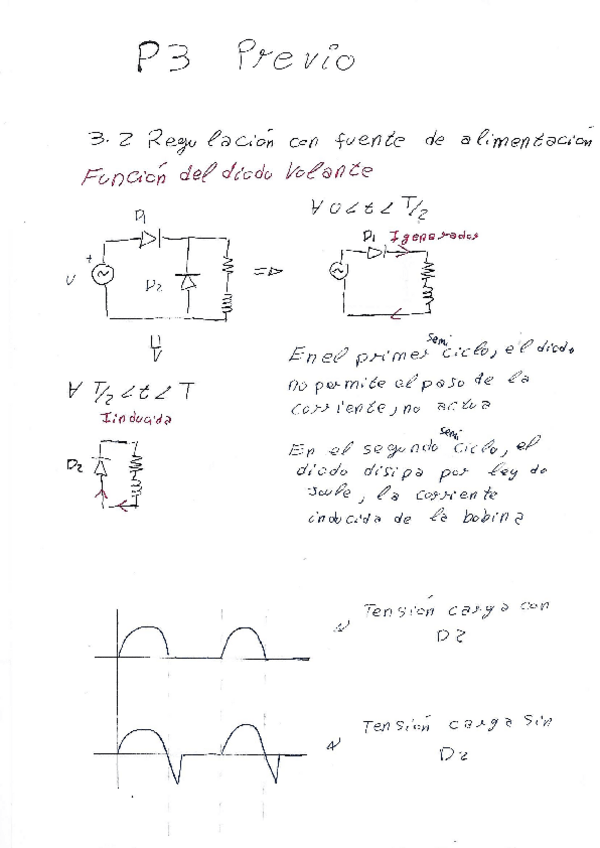 P3 Previo
3.2 Regulación con fuente de alimentación
Función del diodo Volante
∀ 0<t<T/2
D1
D1 Igenerador
+
V
D2
=>
semi
En el primer ciclo, el diodo
no permite el paso de la
corriente, no actua
∀ T/2<t<T
Iinducida
D2
semi
En el segundo ciclo, el
diodo disipa por ley de
Joule, la corriente
inducida de la bobina
Tensión carga con
D2
Tensión carga sin
D2